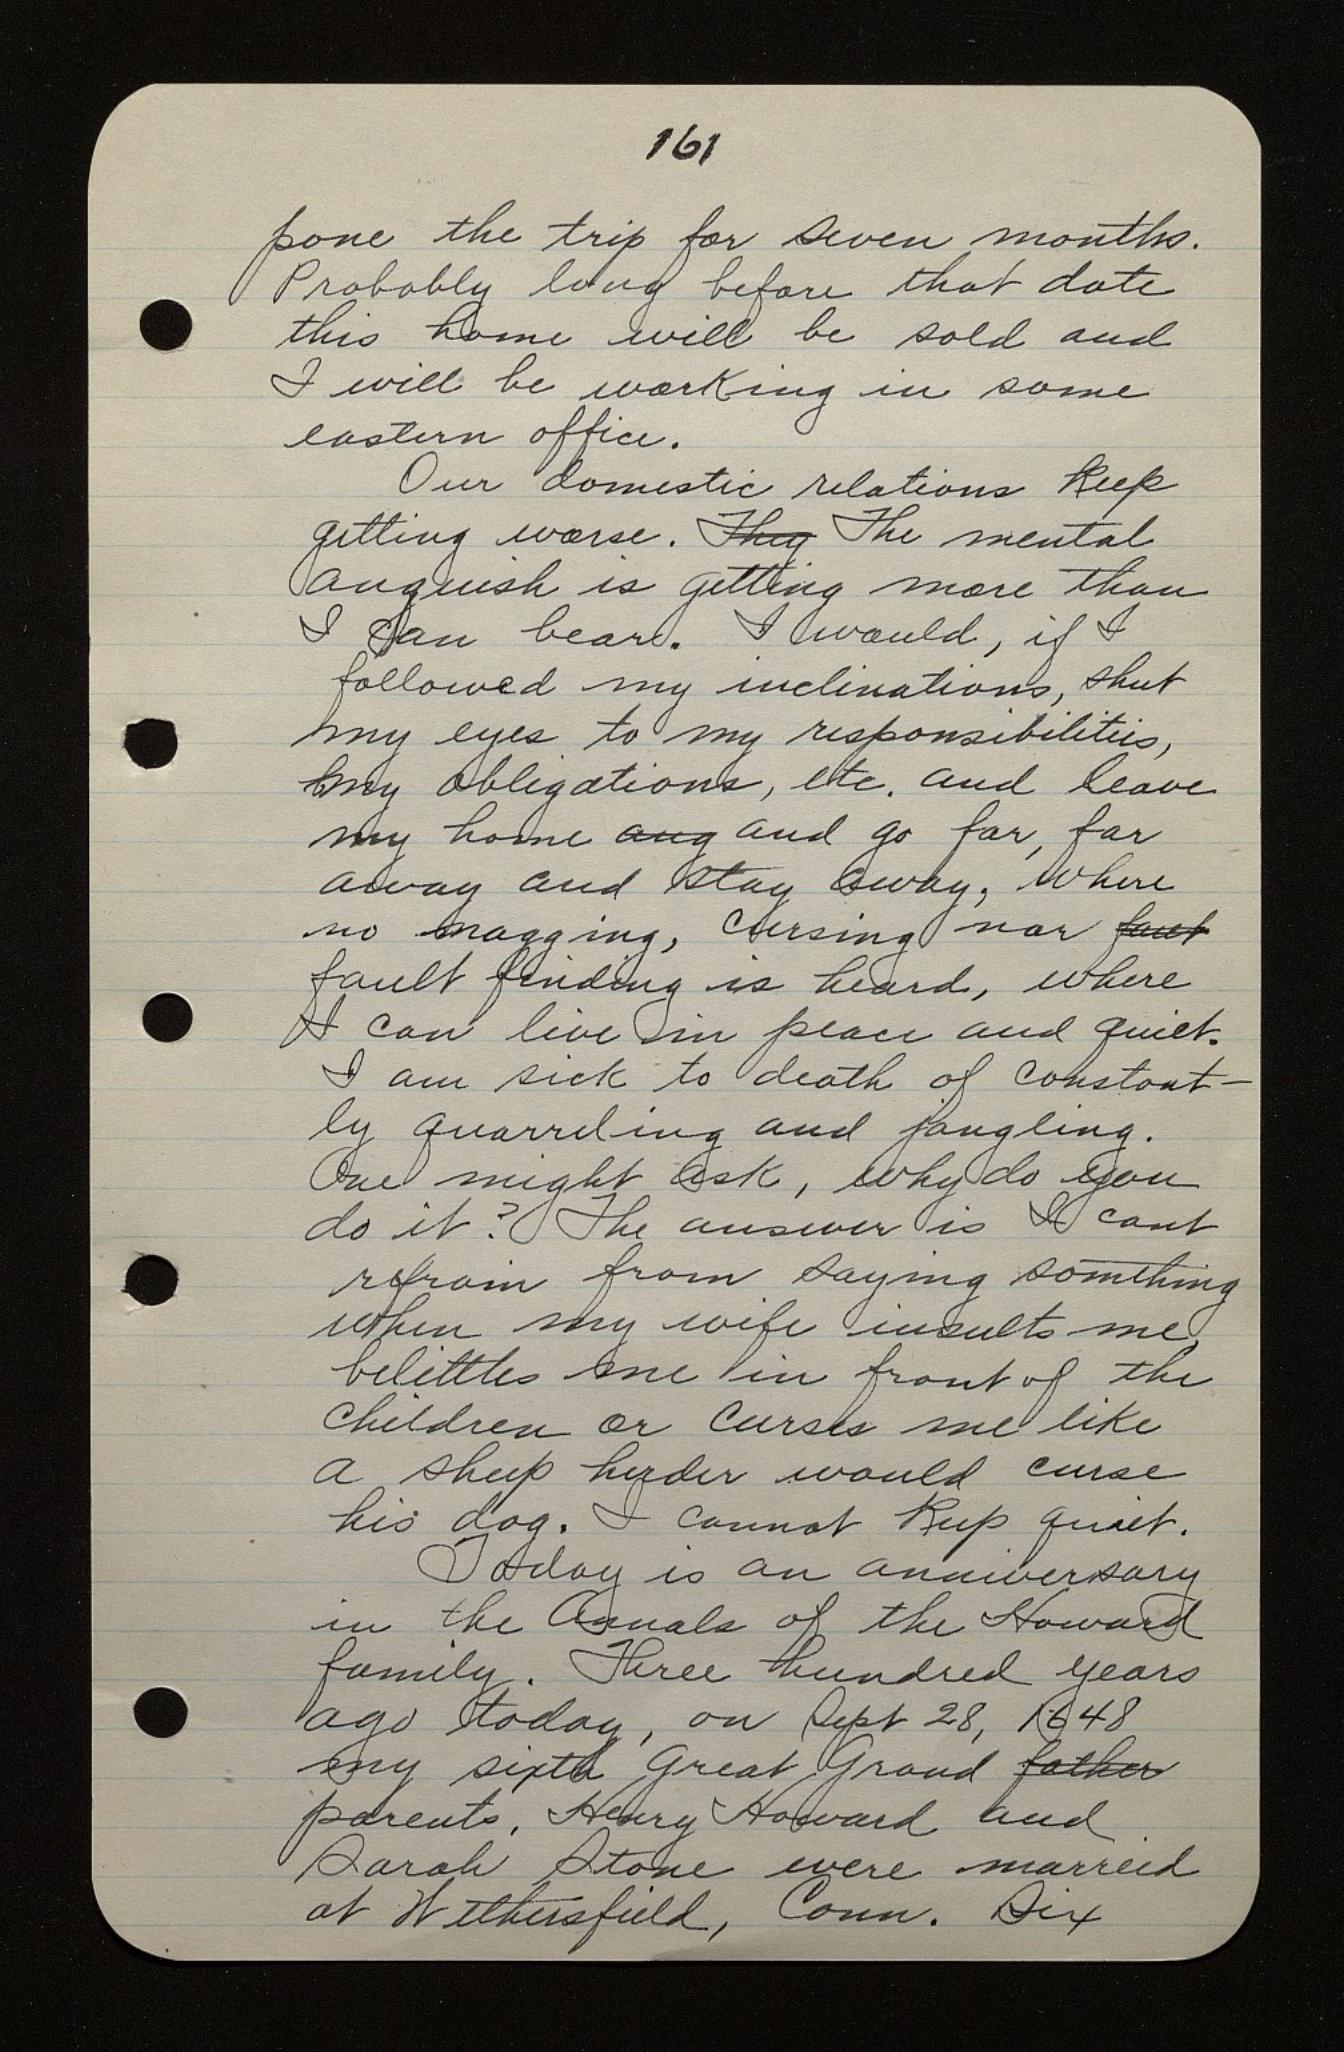 161
pone the trip for seven months.
Probably long before that date
this home will be sold and
I will be working in some
eastern office.
Our domestic relations keep
getting worse. They The mental
anguish is getting more than
I can bear. I would, if I
followed my inclinations, shut
my eyes to my responsibilities,
my obligations, etc. and leave
my home ang and go far, far
away and stay away, where
no nagging, cursing nor faut
fault finding is heard, where
I can live in peace and quiet.
I am sick to death of constant-
ly quarreling and jangling.
One might ask, why do you
do it? The answer is I cant
refrain from saying something
when my wife insults me,
belittles me in front of the
children or curses me like
a sheep herder would curse
his dog. I cannot keep quiet.
Today is an anniversary
in the Annals of the Howard
family. Three hundred years
ago today, on Sept 28, 1648
my sixth Great Grand father
parents, Henry Howard and
Sarah Stone were marreid
at Wethersfield, Conn. Six